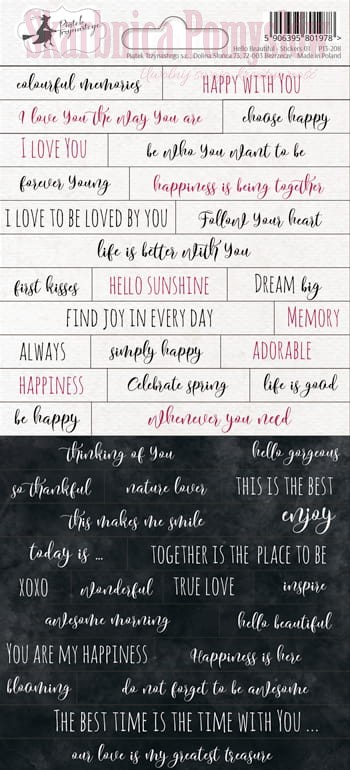 Skarbnica Pomysłów
Piątek Trzynastego
5 906395 801978 >
Hello Beautiful - Stickers 01 P13-208
Piątek Trzynastego s.c., Dolina Słońca 75, 72-003 Bezrzecze Made in Poland
colourful memories HAPPY WITH YOU
I love You the way You are choose happy
I LOVE YOU be who You want to be
forever Young happiness is being together
I LOVE TO BE LOVED BY YOU Follow Your heart
life is better with You
first kisses HELLO SUNSHINE DREAM big
FIND JOY IN EVERY DAY MEMORY
ALWAYS simply happy ADORABLE
HAPPINESS Celebrate spring life is good
be happy Whenever you need
thinking of You hello gorgeous
so thankful nature lover THIS IS THE BEST
this makes me smile enjoy
today is ... TOGETHER IS THE PLACE TO BE
XOXO wonderful TRUE LOVE inspire
awesome morning hello beautiful
YOU ARE MY HAPPINESS Happiness is here
blooming do not forget to be awesome
THE BEST TIME IS THE TIME WITH YOU ...
our love is my greatest treasure